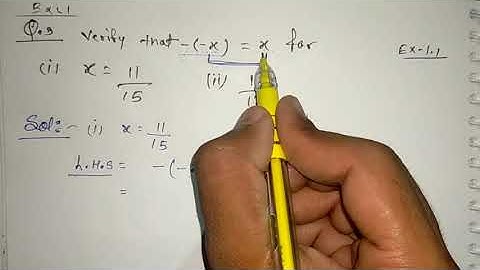 Ex 1.1
Q.3 Verify that -(-x) = x for
Ex-1.1
(i) x = 11/15 (ii)
Sol:- (i) x = 11/15
L.H.S = -(-
=